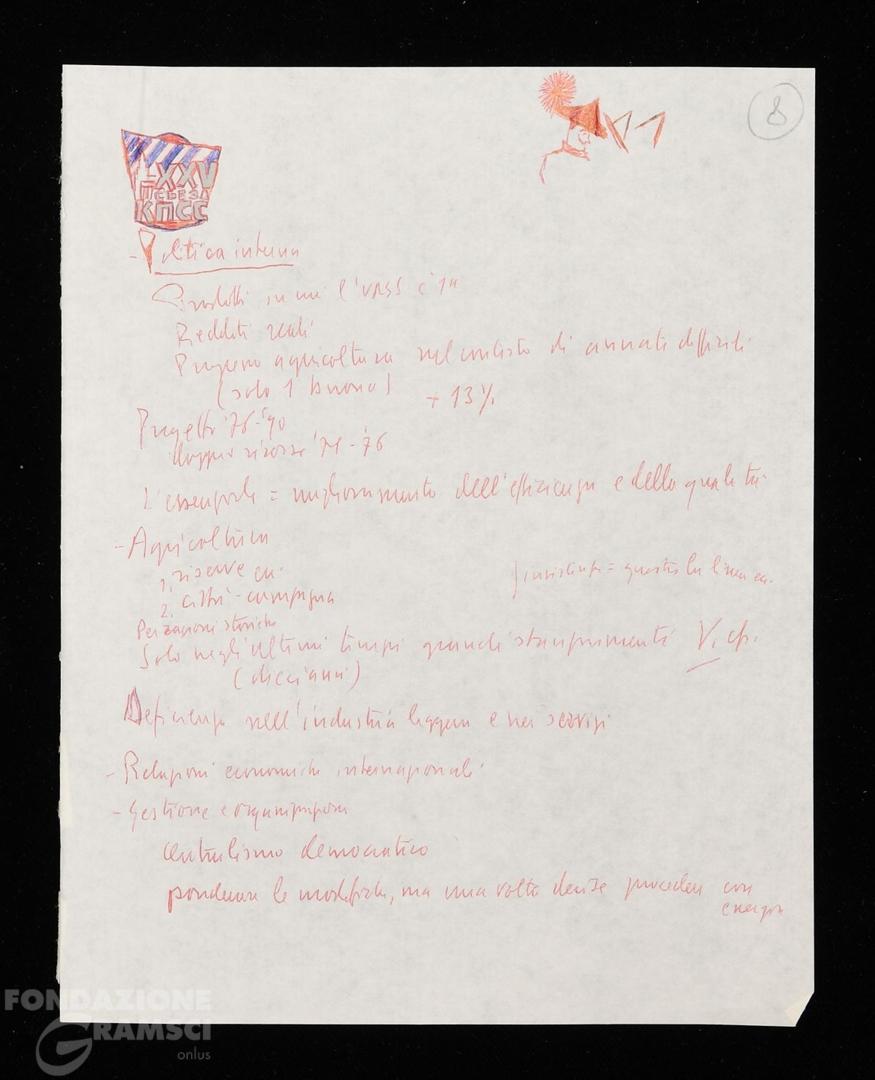 8
XXV
СЪЕЗД
КПСС
- Politica interna
Prodotti in cui l'URSS è 1a
Redditi reali
Progresso agricoltura nel contesto di annate difficili
(solo 1 buona) + 13%
Progetto '76-'90
doppio risorse '71-'76
L'essenziale = miglioramento dell'efficienza e della qualità
- Agricoltura
1. riserve
2. città-campagna
questa la linea
Per ragioni storiche
Solo negli ultimi tempi grandi stanziamenti V.
(dieci anni)
Deficienze nell'industria leggera e nei servizi
- Relazioni economiche internazionali
- Gestione e organizzazione
centralismo democratico
ponderare le modifiche, ma una volta decise procedere con
energia
FONDAZIONE
GRAMSCI
onlus